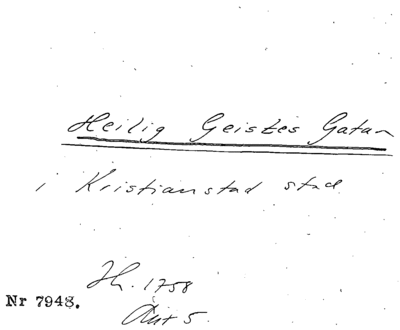 Heilig Geistes Gatan
i Kristianstad stad
Jh. 1758
Nr 7948.
Aut 5.